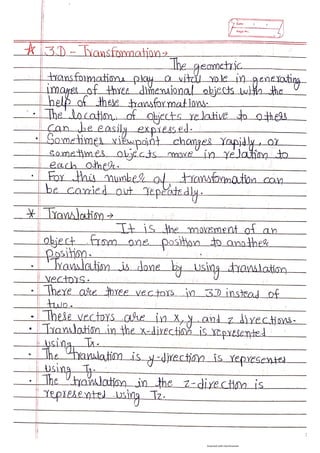 * 3.D - Transformation →
The geometric
transformations play a vital role in generating
images of three dimensional objects with the
help of these transformations.
• The location of objects relative to others
can be easily expressed.
• Sometimes viewpoint changes rapidly, or
sometimes objects move in relation to
each other.
• For this number of transformation can
be carried out repeatedly.
* Translation →
It is the movement of an
object from one position to another
position.
• Translation is done by using translation
vectors.
• There are three vectors in 3D instead of
two.
• These vectors are in x, y and z directions.
• Translation in the x-direction is represented
using Tx.
• The translation is y-direction is represented
using Ty.
• The translation in the z-direction is
represented using Tz.